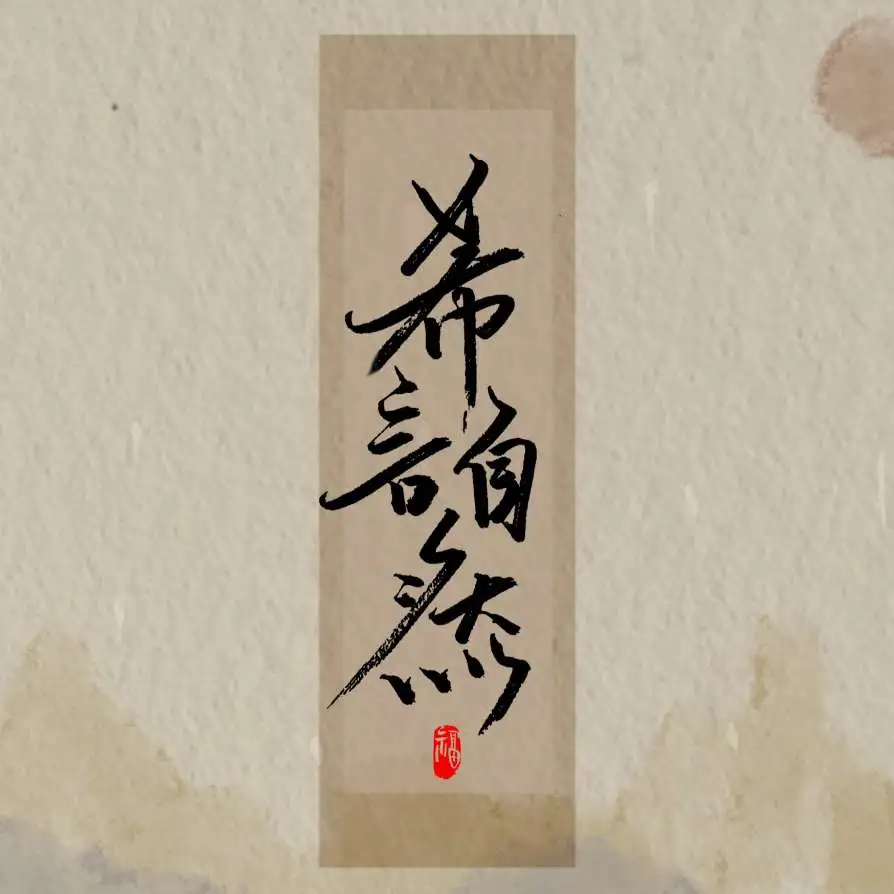 希言自然
福